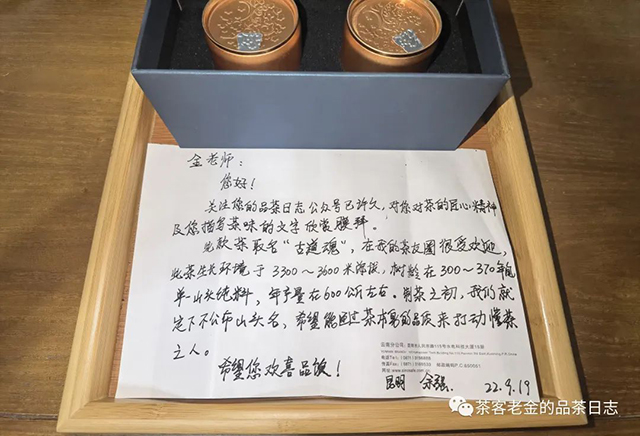 金老师：
您好！
关注您的品茶日志公众号已许久，对您对茶的匠心精神
及您描写茶味的文字欣赏膜拜。
此款茶取名“古道魂”，在我的茶友圈很受欢迎，
此茶生长环境于3300～3600米海拔，树龄在300～370年的
单一山头纯料，年产量在600公斤左右。制茶之初，我们就
定下不公布山头名，希望能通过茶本身的品质来打动懂茶
之人。
希望您欢喜品饮！
昆明 余强 22.9.19
茶客老金的品茶日志